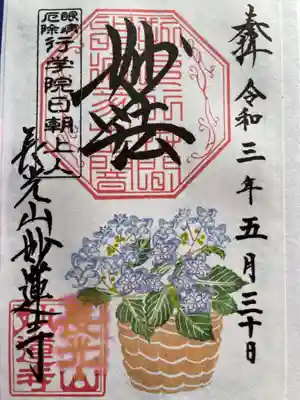 奉拝 令和三年五月三十日
妙法
眼病
厄除
行学院日朝上人
長光山妙蓮寺
妙蓮寺